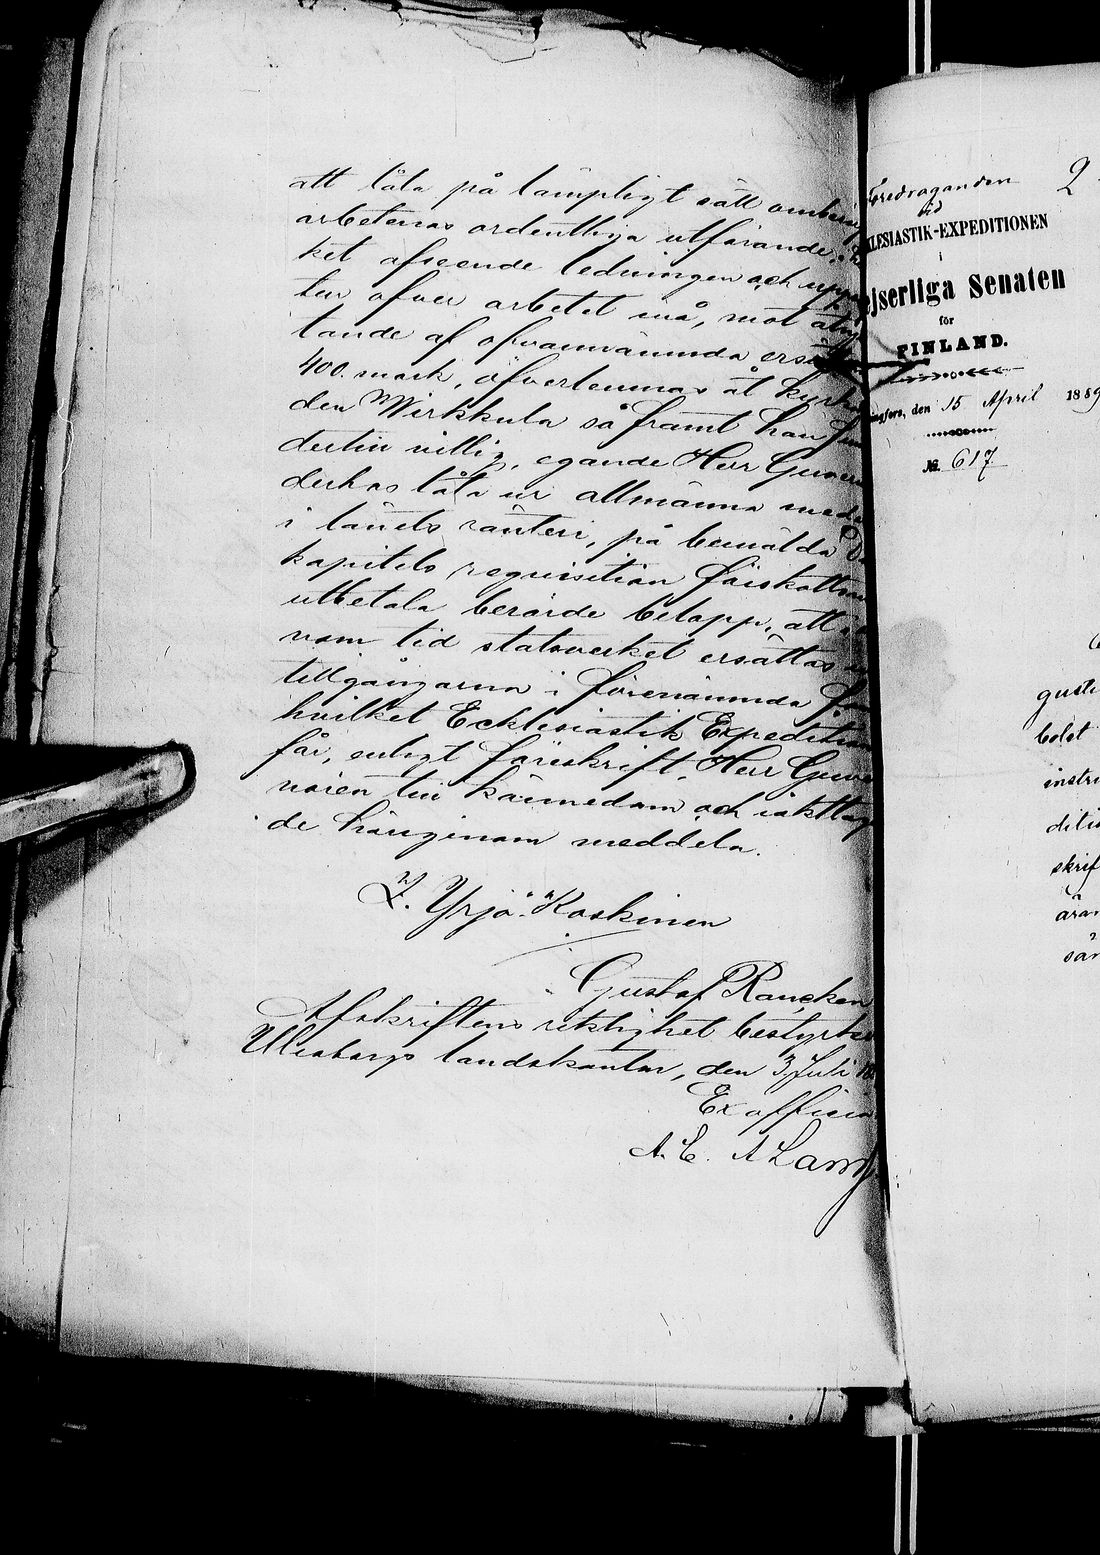 att låta på lämpligt sätt ombesö
arbetenas ordentliga utförande,
ket afseende ledningen och upp
ter öfver arbetet må, mot åtn
tande af ofvannämnda ersä
400 mark, öfverlemnas åt kyrko
den Wirkkula så framt han
dertill villig, egande Herr Guver
derhos låta ur allmänna med
i länets ränteri, på bemälda Do
kapitels requisition förskottsv
utbetala berörde belopp, att
nom tid statsverket ersättas
tillgångarna i förenämnda
hvilket Ecklesiastik Expedition
får, enligt föreskrift, Herr Guve
nören till kännedom och iakttag
de härigenom meddela.
Z. Yrjö-Koskinen
Gustaf Rancken
Afskriftens riktighet bestyrkes
Uleåborgs landskontor, den 3 Juli
Ex officio
A. E. Alamp
Föredraganden
vid
KLESIASTIK-EXPEDITIONEN
i
ejserliga Senaten
för
FINLAND.
ingfors, den 15 April 1889
№ 617
2
gusti
bolst
instru
ditio
skrif
äran
sär